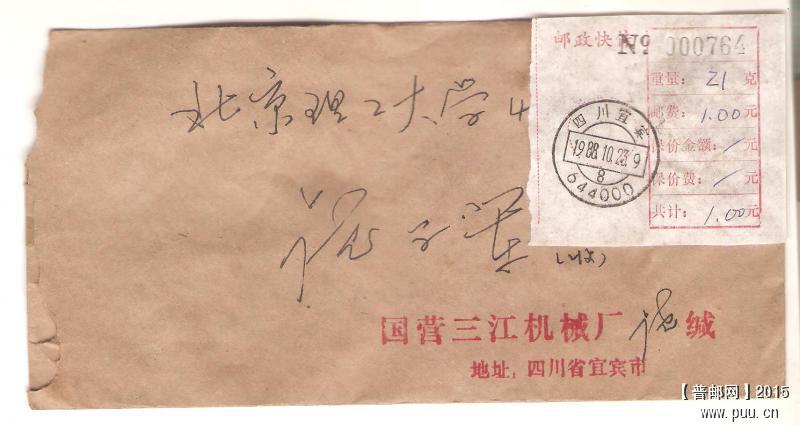 邮政快 № 000764
重量: 21 克
邮费: 1.00元
保价金额: / 元
保价费: / 元
共计: 1.00元
四川宜宾
1988.10.23.9
8
644000
北京理工大学
(收)
国营三江机械厂 缄
地址: 四川省宜宾市
【普邮网】2015
www.puu.cn